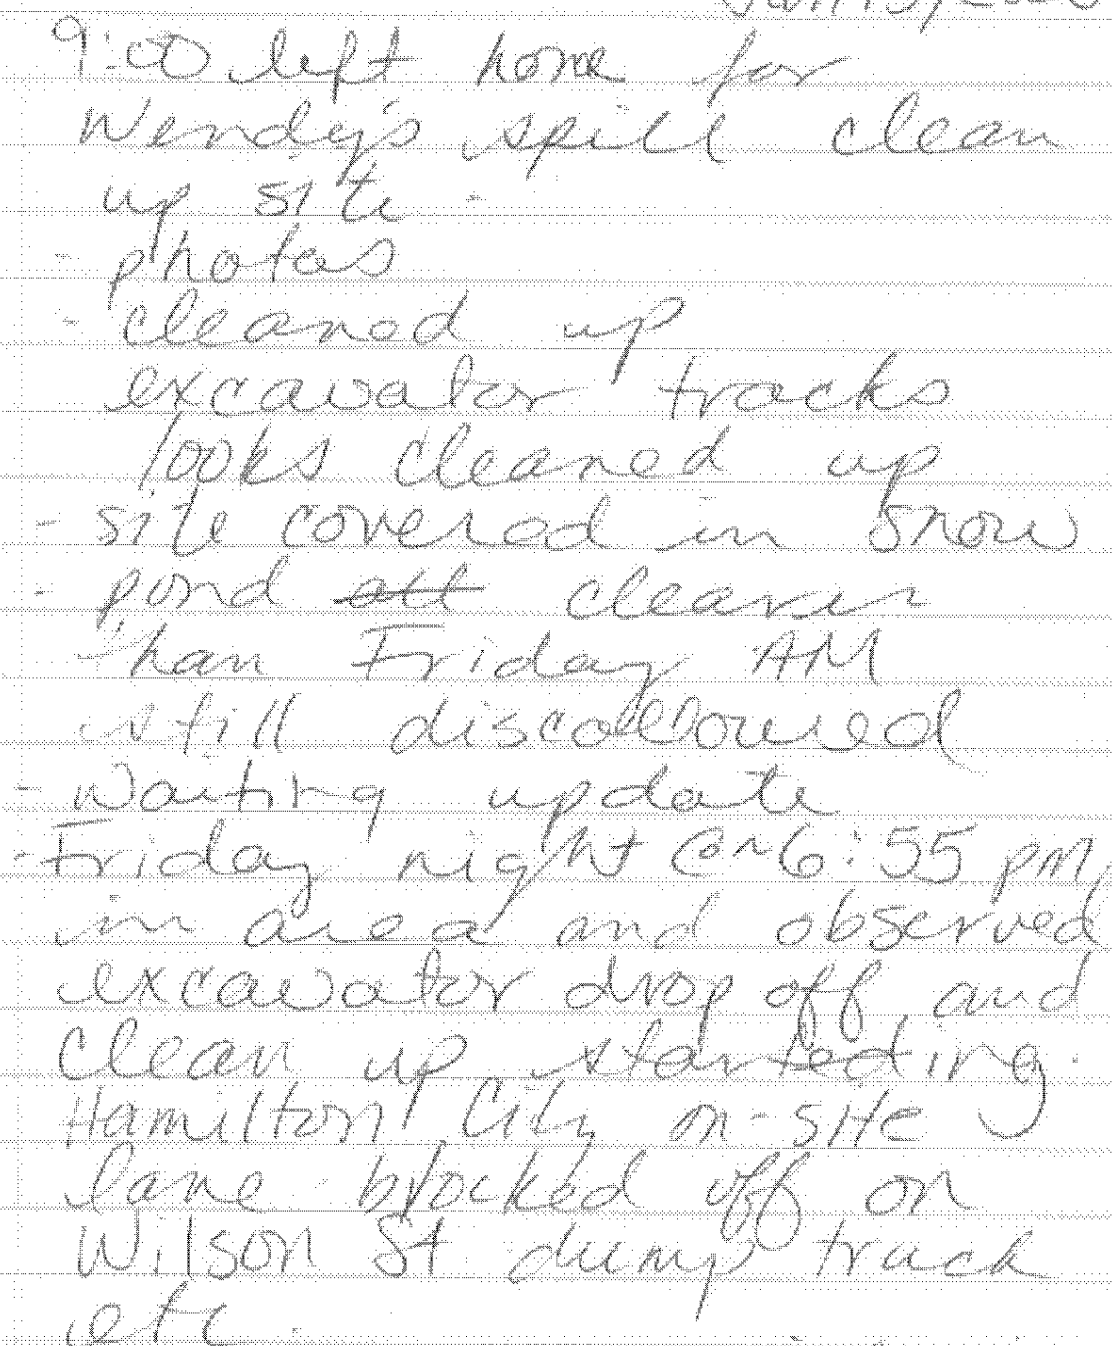 9:00 left home for
Wendy's spill clean
up site -
- photos
- cleaned up
excavator tracks
looks cleaned up
- site covered in snow
- pond cleaner
than Friday AM
still discoloured
- Waiting update
- Friday night @ ~6:55 pm
in area and observed
excavator drop off and
clean up starteding.
Hamilton City on-site
lane blocked off on
Wilson St dump truck
etc.